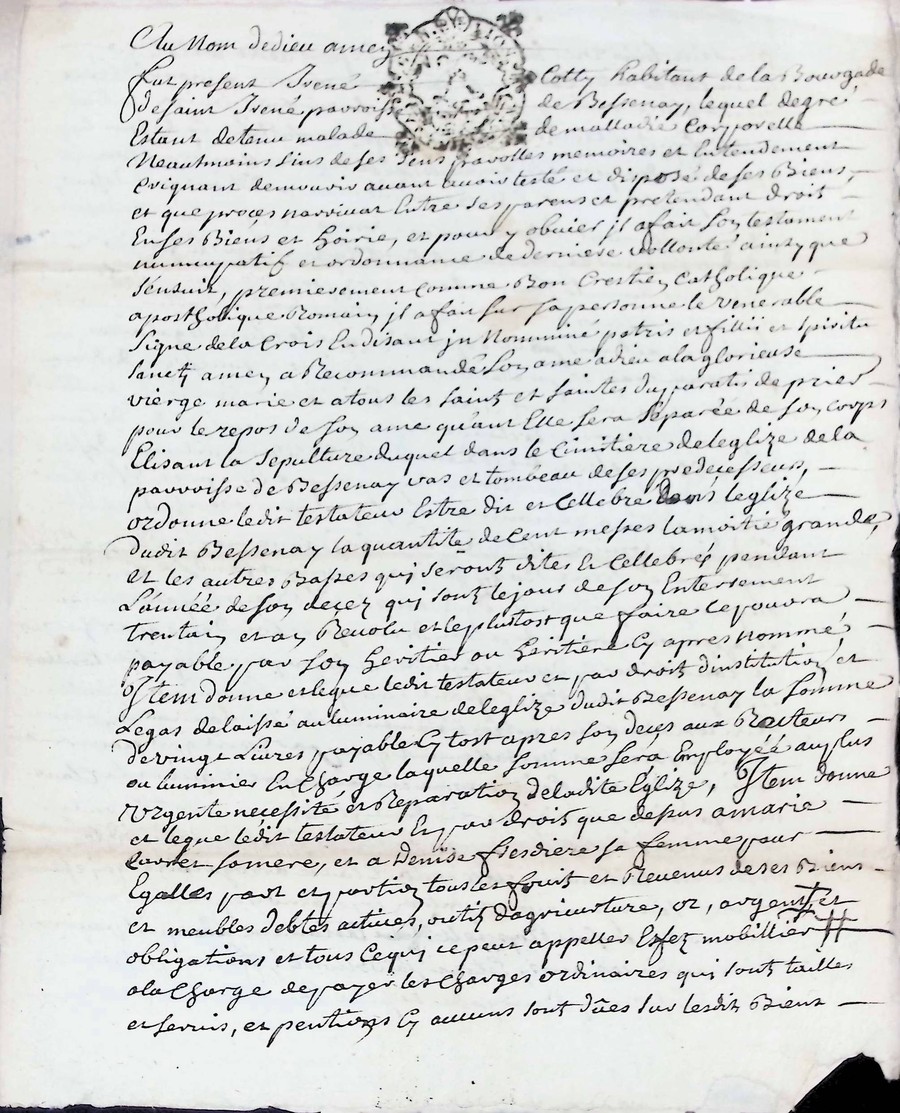 Au Nom dedieu amen
fut present Irené Cotty habitant de la Bourgade
desaint Irené parroisse de Bessenay, lequel degré
Estant detenu malade de malladie Corporelle
Neautmoins sins de ses sens parolles memoires et Entendement
Creignant demourir avant avoir testé et disposé de ses Biens,
et que proçes narrivat Entre ses parens et pretendant droit
Enses Biens et hoirie, et pour y obvier jl afait son testament
nuncupatif et ordonnance de derniere vollonté ainsy que
sensuit, premierement comme Bon Crestien Catholique
apostholique Romain jl a fait sur sa personne le venerable
signe de la Crois En disant jn Nommine patris et fillii et spiritu
sancti amen, a Recommandé son ame a dieu a la glorieuse
vierge marie et atous les saint et saintes du paratis de prier
pour le repos de son ame qu'ant Elle sera separée de son corps
Elisant la sepulture duquel dans le Cimitiere de leglize de la
parroisse de Bessenay vas et tombeau de ses predecesseurs,
ordonne ledit testateur Estre dit et Cellebré dans leglize
dudit Bessenay la quantité de Cent messes la moitié grande,
et les autres Basses qui seront dites Et Cellebré pendant
L'année de son deçez qui sont le jour de son Enterrement
trentain et an Revolu et leplustost que faire ce pouvra
payable par son heritier ou heritiere Cy apres nommé
Item donne et legue ledit testateur et par droit d'institution et
Legas delaissé au luminaire de leglize dudit Bessenay la somme
de vingt Livres payable Cy tost apres son deçes aux Recteurs
ou luminier En Charge laquelle somme sera Employéé au plus
urgente necessité et Reparation de ladite Eglize, Item donne
et legue ledit testateur Et par droit que depus a marie
samere, et a Denise fresdiere sa femme pour
Egalles part et portion tous les fruit et Revenus de ses Biens
et meubles debtes actives, outis d'agricurture, or, argent, et
obligations et tous Ce qui ce peut appeller Effet mobillier #
a la Charge de payer les Charges ordinaires qui sont tailles
et servis, et pentions Cy aucuns sont dûes sur lesdit Biens